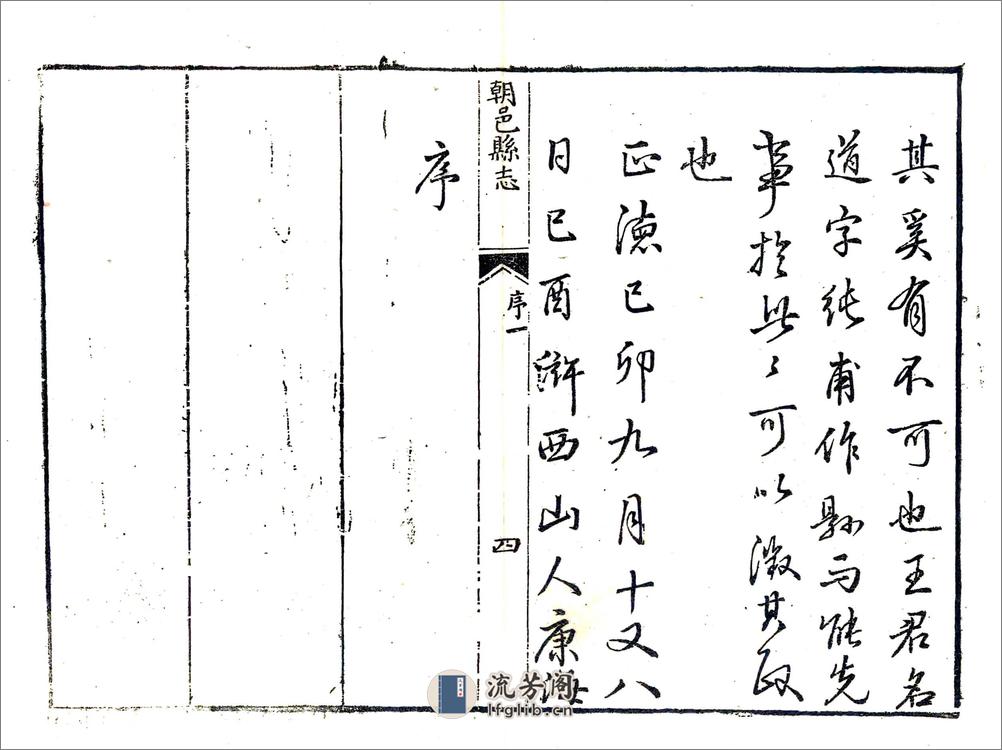 其奚有不可也王君名
道字純甫作縣而能先
事於此々可以徵其政
也
正德己卯九月十又八
日己酉滸西山人康海
序
朝邑縣志
序一
四
流芳阁
lfglib.cn